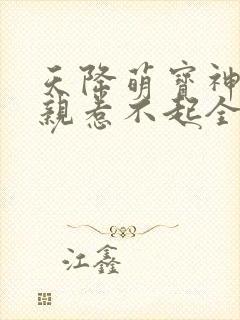 天降萌宝神
亲惹不起全
江鑫